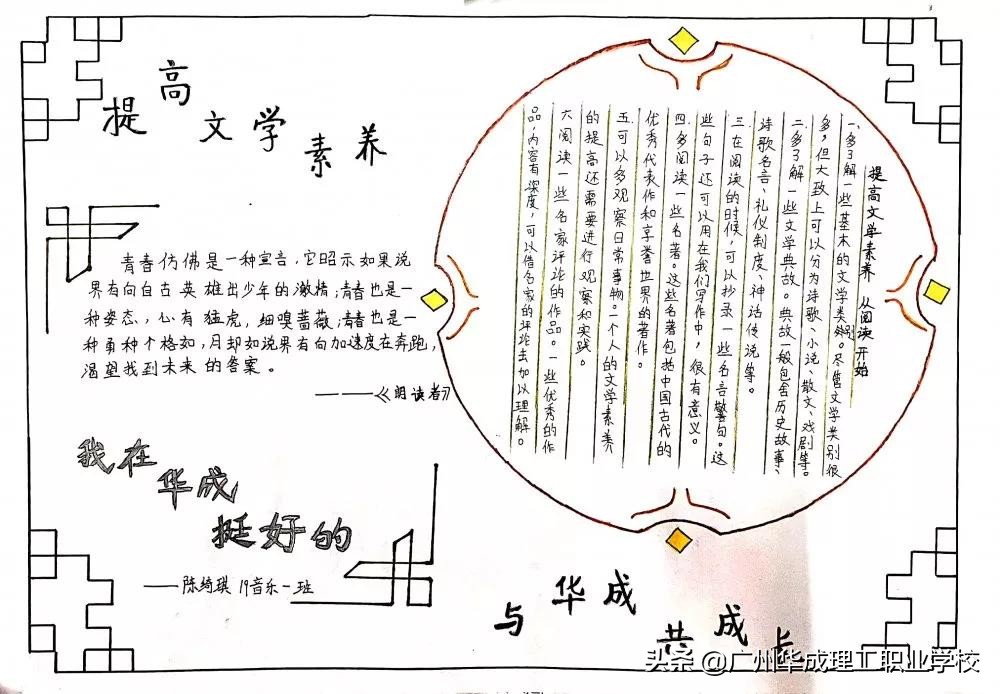 提高文学素养
青春仿佛是一种宣言,它昭示如果说
界有向自古英雄出少年的激情;青春也是一
种姿态,心有猛虎,细嗅蔷薇;青春也是一
种勇种个格如,月却如说界有向加速度在奔跑,
渴望找到未来的答案。
——《朗读者》
我在
华成
挺好的
——陈绮琪 19音乐一班
提高文学素养 从阅读开始
一.多了解一些基本的文学类别。尽管文学类别很
多,但大致上可以分为诗歌、小说、散文、戏剧等。
二.多了解一些文学典故。典故一般包含历史故事、
诗歌名言、礼仪制度、神话传说等。
三.在阅读的时候,可以抄录一些名言警句。这
些句子还可以用在我们写作中,很有意义。
四.多阅读一些名著。这些名著包括中国古代的
优秀代表作和享誉世界的著作。
五.可以多观察日常事物。一个人的文学素养
的提高还需要进行观察和实践。
六.阅读一些名家评论的作品。一些优秀的作
品,内容有深度,可以借名家的评论去加以理解。
与华成共成长
头条@广州华成理工职业学校